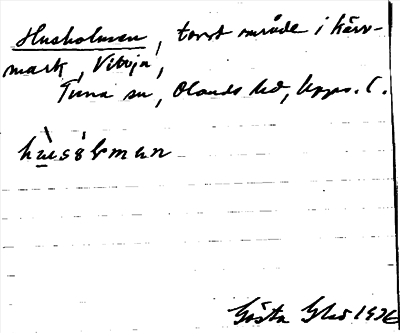 Husholmen, torrt område i kärr-
mark, Viboja,
Tuna sn, Olands hd, Upps. l.
hùsólman
Gösta Glad 1926